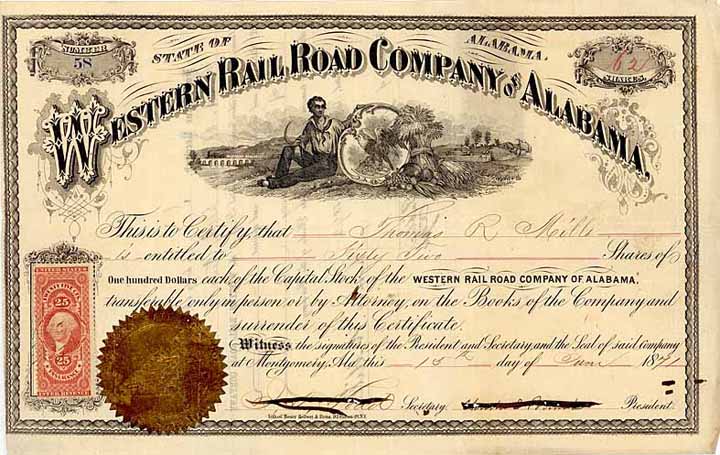 NUMBER
58
STATE OF ALABAMA.
62
SHARES.
WESTERN RAIL ROAD COMPANY OF ALABAMA.
This is to Certify, that Thomas R. Mills
is entitled to Sixty Two Shares of
One hundred Dollars each of the Capital Stock of the WESTERN RAIL ROAD COMPANY OF ALABAMA,
transferable only in person or by Attorney, on the Books of the Company and
surrender of this Certificate.
Witness the signatures of the President and Secretary, and the Seal of said Company
at Montgomery, Ala this 15th day of June 1871
Secretary. President.
25
25